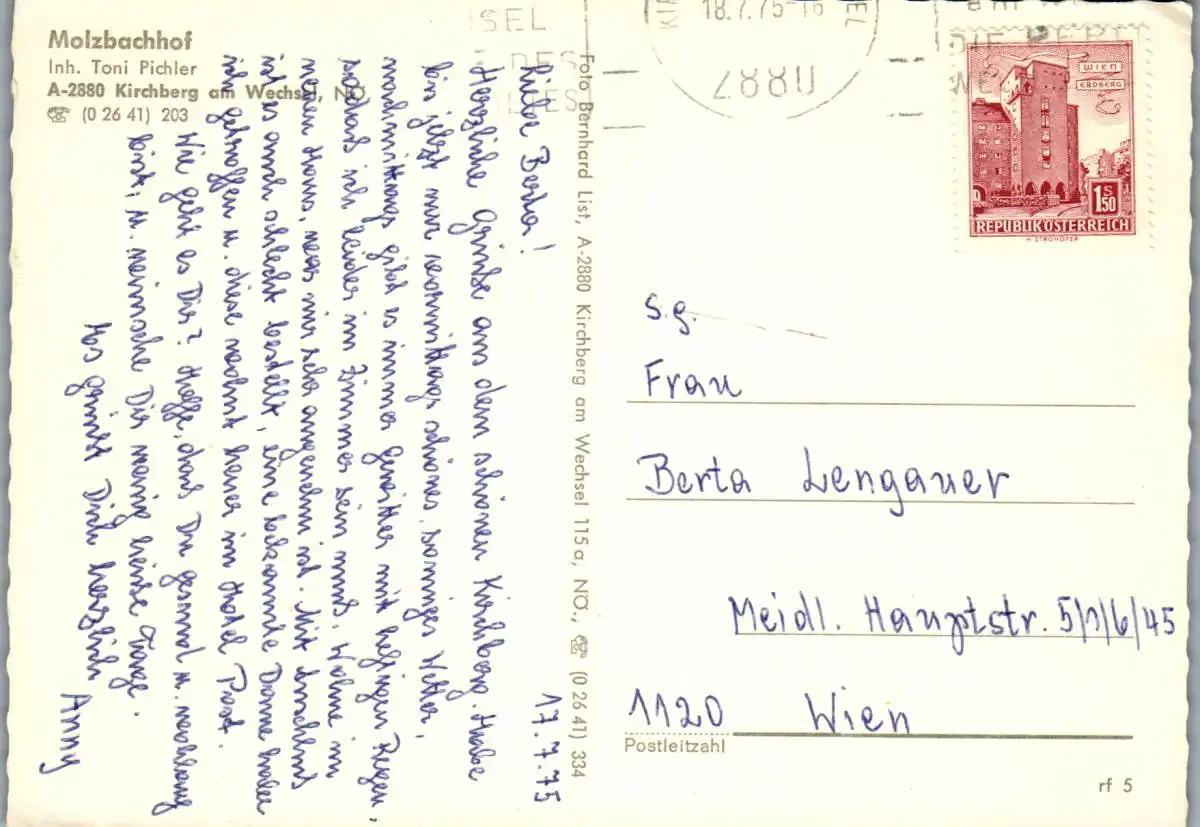 Molzbachhof
Inh. Toni Pichler
A-2880 Kirchberg am Wechsel, NÖ
☎ (0 26 41) 203
17. 7. 75
Liebe Berta!
Herzliche Grüße aus dem schönen Kirchberg. Habe
bis jetzt nur vormittags schönes, sonniges Wetter,
nachmittags gibt es immer Gewitter mit heftigen Regen,
sodass ich leider im Zimmer sein muß. Wohne im
neuen Haus, was mir sehr angenehm ist. Mit Anschluß
ist es auch schlecht bestellt, eine bekannte Dame habe
ich getroffen u. diese wohnt heuer im Hotel Post.
Wie geht es Dir? Hoffe, dass Du gesund u. wohlauf
bist, u. wünsche Dir wenig heisse Tage.
Es grüßt Dich herzlich
Anny
Foto Bernhard List, A-2880 Kirchberg am Wechsel 115 a, NÖ., ☎ (0 26 41) 334
18.7.75-16
2880
WIEN
ERDBERG
1S50
REPUBLIK ÖSTERREICH
H. STROHOFER
S.g.
Frau
Berta Lengauer
Meidl. Hauptstr. 5/1/6/45
1120 Wien
Postleitzahl
rf 5